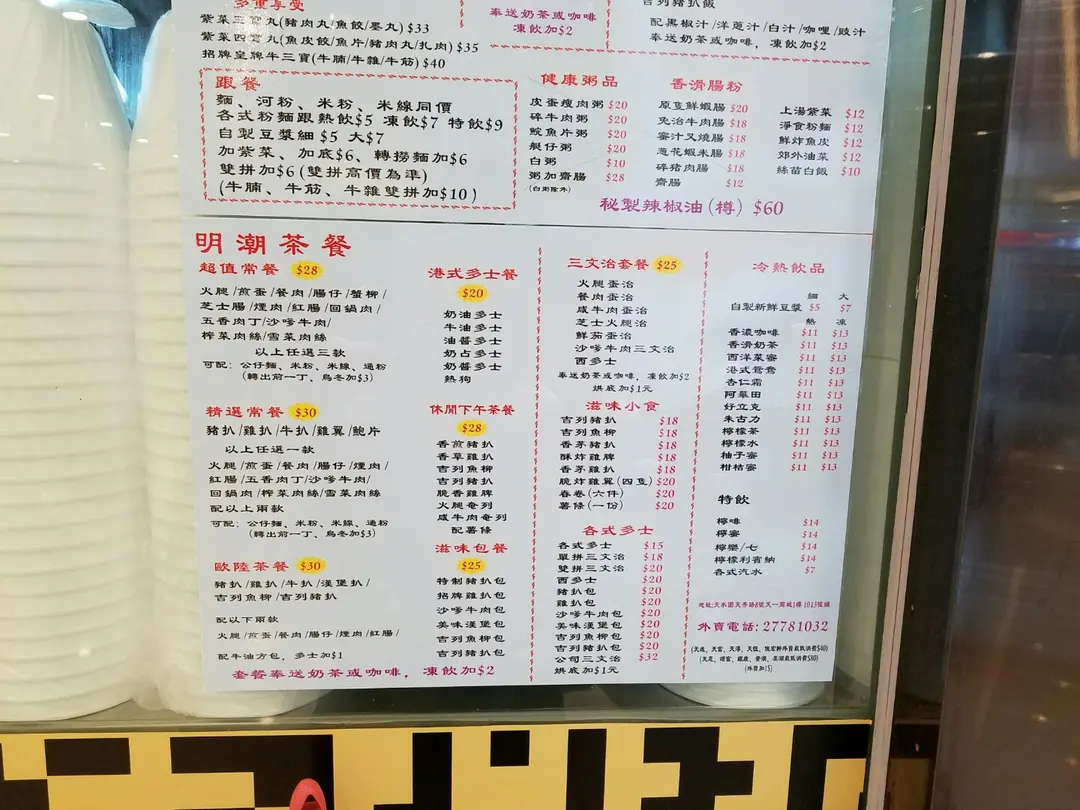 多重享受
紫菜三寶丸(豬肉丸/魚餃/墨丸) $33
紫菜四寶丸(魚皮餃/魚片/豬肉丸/扎肉) $35
招牌皇牌牛三寶(牛腩/牛雜/牛筋) $40
奉送奶茶或咖啡
凍飲加$2
吉列豬扒飯
配黑椒汁/洋蔥汁/白汁/咖喱/豉汁
奉送奶茶或咖啡，凍飲加$2
跟餐
麵、河粉、米粉、米線同價
各式粉麵跟熱飲$5 凍飲$7 特飲$9
自製豆漿細$5 大$7
加紫菜、加底$6、轉撈麵加$6
雙拼加$6(雙拼高價為準)
(牛腩、牛筋、牛雜雙拼加$10)
健康粥品
皮蛋瘦肉粥 $20
碎牛肉粥 $20
鯇魚片粥 $20
艇仔粥 $20
白粥 $10
粥加齋腸 $28
(白粥除外)
香滑腸粉
原隻鮮蝦腸 $20
免治牛肉腸 $18
蜜汁叉燒腸 $18
蔥花蝦米腸 $18
碎豬肉腸 $18
齋腸 $12
上湯紫菜 $12
淨食粉麵 $12
鮮炸魚皮 $12
郊外油菜 $12
絲苗白飯 $10
秘製辣椒油(樽) $60
明潮茶餐
超值常餐 $28
火腿/煎蛋/餐肉/腸仔/蟹柳/
芝士腸/煙肉/紅腸/回鍋肉/
五香肉丁/沙嗲牛肉/
榨菜肉絲/雪菜肉絲
以上任選三款
可配：公仔麵、米粉、米線、通粉
(轉出前一丁、烏冬加$3)
精選常餐 $30
豬扒/雞扒/牛扒/雞翼/鮑片
以上任選一款
火腿/煎蛋/餐肉/腸仔/煙肉/
紅腸/五香肉丁/沙嗲牛肉/
回鍋肉/榨菜肉絲/雪菜肉絲
配以上兩款
可配：公仔麵、米粉、米線、通粉
(轉出前一丁、烏冬加$3)
歐陸茶餐 $30
豬扒/雞扒/牛扒/漢堡扒/
吉列魚柳/吉列豬扒
配以下兩款
火腿/煎蛋/餐肉/腸仔/煙肉/紅腸/
配牛油方包，多士加$1
港式多士餐
$20
奶油多士
牛油多士
油醬多士
奶占多士
奶醬多士
熱狗
休閒下午茶餐
$28
香煎豬扒
香草雞扒
吉列魚柳
吉列豬扒
脆香雞脾
火腿奄列
咸牛肉奄列
配薯條
滋味包餐
$25
特制豬扒包
招牌雞扒包
沙嗲牛肉包
美味漢堡包
吉列魚柳包
吉列豬扒包
套餐奉送奶茶或咖啡，凍飲加$2
三文治套餐 $25
火腿蛋治
餐肉蛋治
咸牛肉蛋治
芝士火腿治
鮮茄蛋治
沙嗲牛肉三文治
西多士
奉送奶茶或咖啡，凍飲加$2
烘底加$1元
滋味小食
吉列豬扒 $18
吉列魚柳 $18
香茅豬扒 $18
酥炸雞脾 $18
香茅雞扒 $18
脆炸雞翼(四隻) $20
春卷(六件) $20
薯條(一份) $20
各式多士
各式多士 $15
單拼三文治 $18
雙拼三文治 $20
西多士 $20
豬扒包 $20
雞扒包 $20
沙嗲牛肉包 $20
美味漢堡包 $20
吉列魚柳包 $20
吉列豬扒包 $20
公司三文治 $32
烘底加$1元
冷熱飲品
細 大
自製新鮮豆漿 $5 $7
熱 凍
香濃咖啡 $11 $13
香滑奶茶 $11 $13
西洋菜蜜 $11 $13
港式鴛鴦 $11 $13
杏仁霜 $11 $13
阿華田 $11 $13
好立克 $11 $13
朱古力 $11 $13
檸檬茶 $11 $13
檸檬水 $11 $13
柚子蜜 $11 $13
柑桔蜜 $11 $13
特飲
檸啡 $14
檸蜜 $14
檸樂/七 $14
檸檬利賓納 $14
各式汽水 $7
地址:天水圍天秀路8號天一商城1樓1013號舖
外賣電話: 27781032
(外賣加1$)